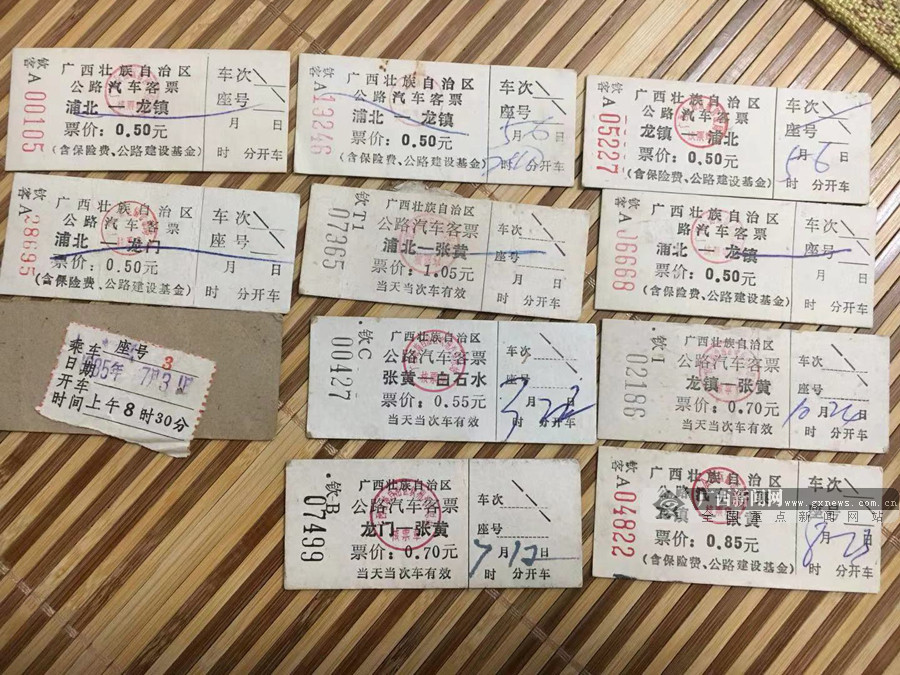 钦
客
A 00105
广西壮族自治区
公路汽车客票
浦北—龙镇
票价：0.50元
(含保险费、公路建设基金)
车次
座号
月 日
时 分开车
钦
客
A
广西壮族自治区
公路汽车客票
浦北—龙镇
票价：0.50元
(含保险费、公路建设基金)
车次
座号
5月6日
时 分开车
钦
客
A 05227
广西壮族自治区
公路汽车客票
龙镇—浦北
票价：0.50元
(含保险费、公路建设基金)
车次
座号
5月6日
时 分开车
钦
客
A 38695
广西壮族自治区
公路汽车客票
浦北—龙门
票价：0.50元
(含保险费、公路建设基金)
车次
座号
月 日
时 分开车
钦T1
07365
广西壮族自治区
公路汽车客票
浦北—张黄
票价：1.05元
当天当次车有效
车次
座号
月 日
时 分开车
钦
客
A J6668
广西壮族自治区
公路汽车客票
浦北—龙镇
票价：0.50元
(含保险费、公路建设基金)
车次
座号
月 日
时 分开车
乘车 座号 3
日期
开车
时间上午8时30分
钦C
00427
广西壮族自治区
公路汽车客票
张黄—白石水
票价：0.55元
当天当次车有效
车次
座号
月 日
时 分开车
钦I
02186
广西壮族自治区
公路汽车客票
龙镇—张黄
票价：0.70元
当天当次车有效
车次
座号
10月24日
时 分开车
钦B
07499
广西壮族自治区
公路汽车客票
龙门—张黄
票价：0.70元
当天当次车有效
车次
座号
7月12日
时 分开车
钦
客
A 04822
广西壮族自治区
公路汽车客票
龙镇—张黄
票价：0.85元
(含保险费、公路建设基金)
车次
座号
8月25日
时 分开车
广西新闻网
www.gxnews.com.cn
全国重点新闻网站